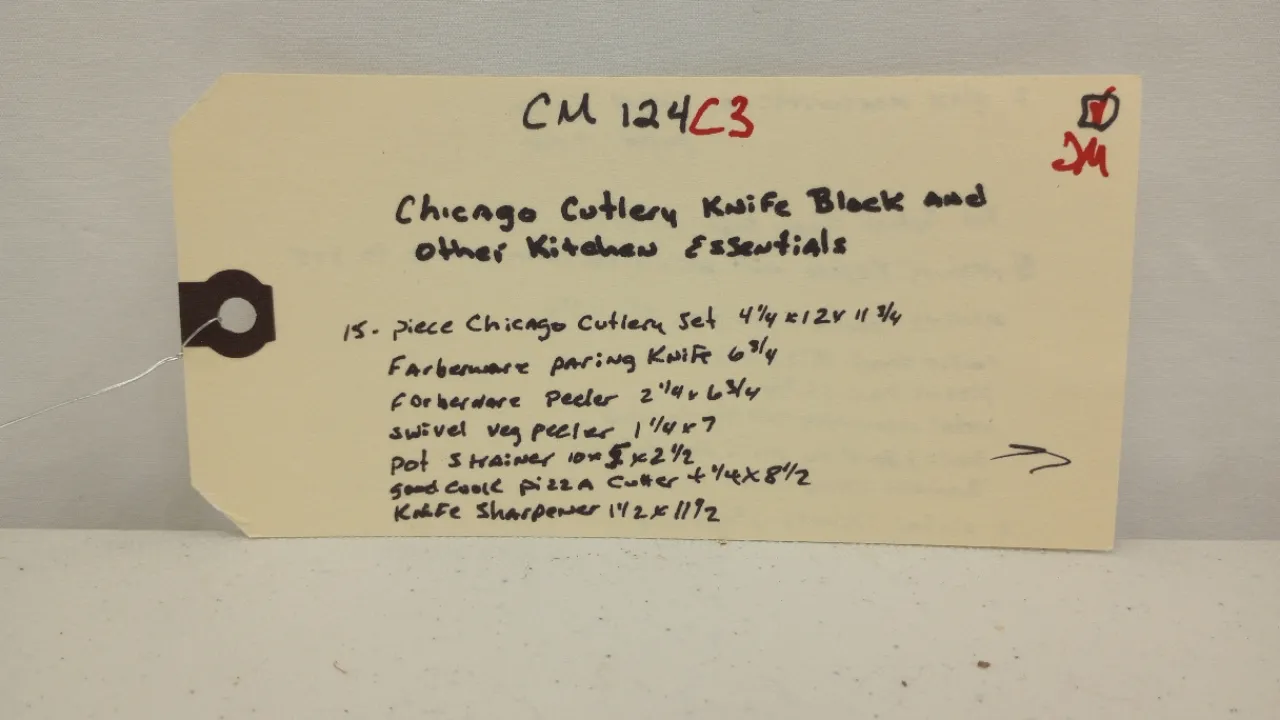 CM 124C3
JM
Chicago Cutlery Knife Block and
other Kitchen Essentials
15. piece Chicago Cutlery Set 4 1/4 x 12 x 11 3/4
Farberware paring Knife 6 3/4
Forberdare Peeler 2 1/4 x 6 3/4
swivel veg peeler 1 1/4 x 7
pot strainer 10 x 5 x 2 1/2
good cook pizza Cutter 4 1/4 x 8 1/2
Knife Sharpener 1 1/2 x 11 1/2